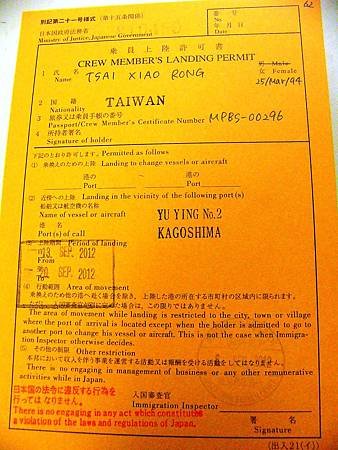 62
別記第二十一号様式(第十五条関係)
日本国政府法務省
Ministry of Justice, Japanese Government
番号
No.
年月日
Date
乗員上陸許可書
CREW MEMBER'S LANDING PERMIT
1 氏名
Name TSAI XIAO RONG
男 Male
女 Female
25/Mar/94
2 国籍
Nationality TAIWAN
3 旅券又は乗員手帳の番号
Passport/Crew Member's Certificate Number MPBS-00296
4 所持者署名
Signature of holder
下記のとおり許可します。Permitted as follows
(1) 乗換えのための上陸 Landing to change vessels or aircraft
港の 港へ
Port Port
(2) 近傍への上陸 Landing in the vicinity of the following port(s)
船舶又は航空機の名称
Name of vessel or aircraft YU YING No.2
港名
Port(s) of call KAGOSHIMA
(3) 上陸期間 Period of landing
13. SEP. 2012
From
20. SEP. 2012
To
(4) 行動範囲 Area of movement
乗換えのため他の港へ赴く場合を除き、上陸した港の所在する市町村の区域内に限られます。
The area of movement while landing is restricted to the city, town or village
where the port of arrival is located except when the holder is admitted to go to
another port to change his vessel or aircraft. This is not the case when Immigra-
tion Inspector otherwise decides.
(5) その他の制限 Other restriction
本邦において収入を伴う事業を運営する活動又は報酬を受ける活動をしてはなりません。
There is no engaging in management of business or any other remunerative
activities while in Japan.
日本国の法令に違反する行為を
行ってはなりません。
There is no engaging in any act which constitutes
a violation of the laws and regulations of Japan.
入国審査官
Immigration Inspector
署名
Signature
(出入21(イ))